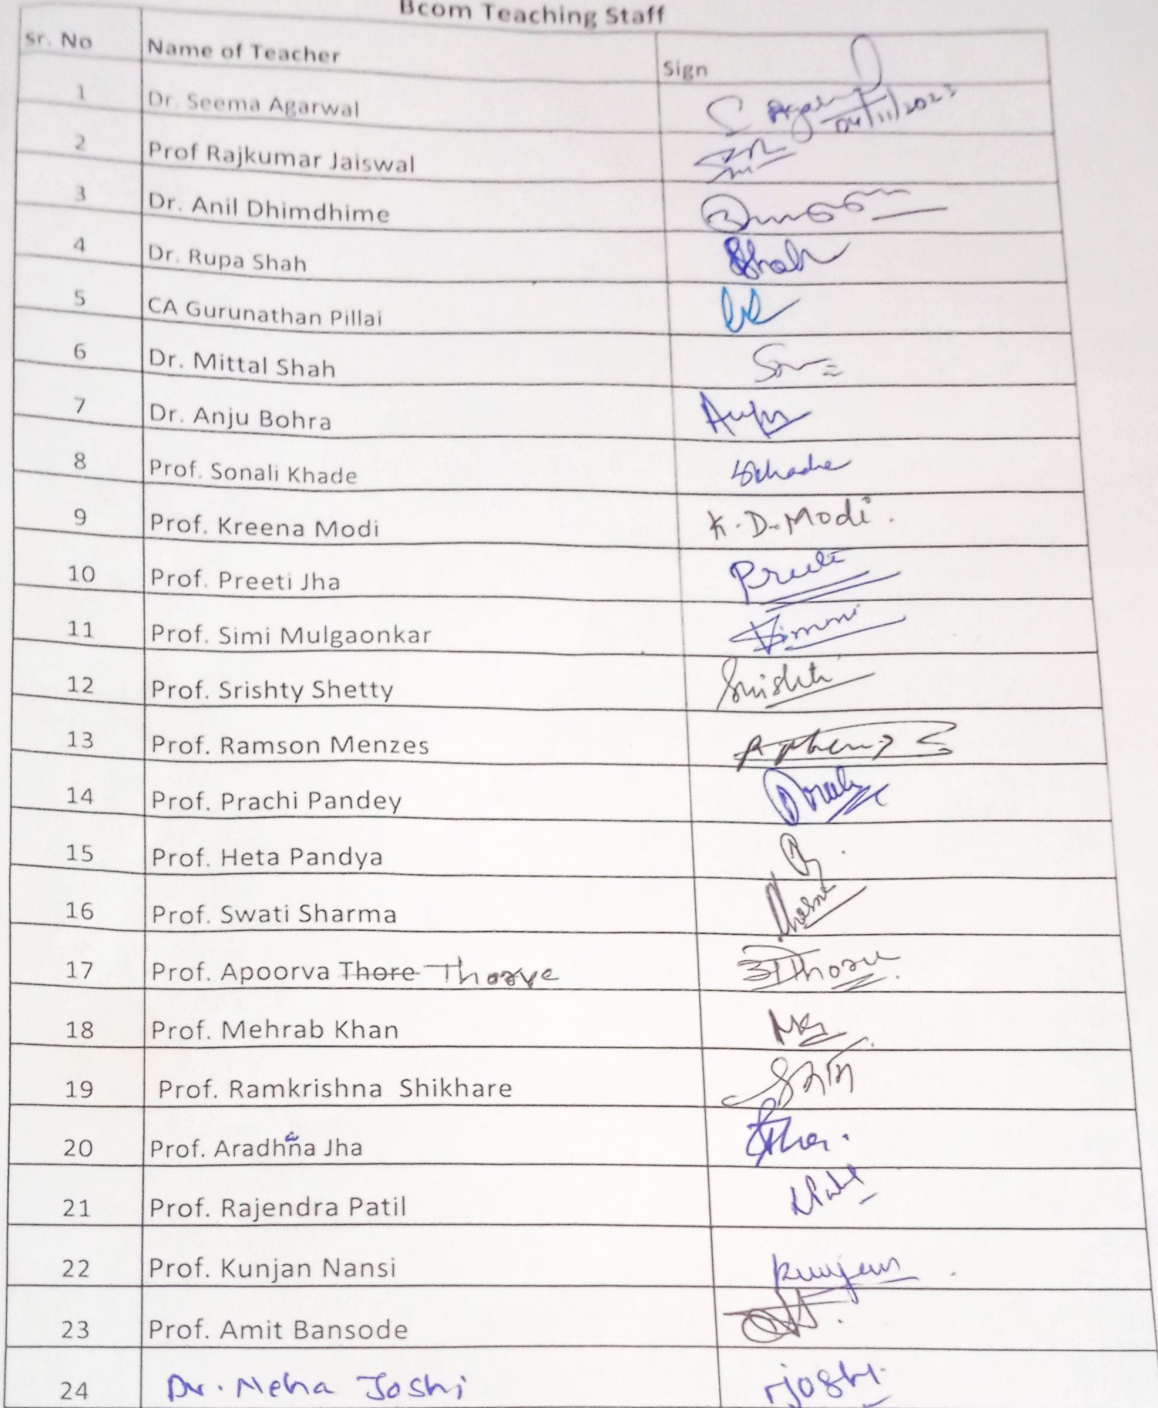 Bcom Teaching Staff
Sr. No Name of Teacher Sign
1 Dr. Seema Agarwal S Agarwal 04/11/2023
2 Prof Rajkumar Jaiswal
3 Dr. Anil Dhimdhime
4 Dr. Rupa Shah Shah
5 CA Gurunathan Pillai
6 Dr. Mittal Shah
7 Dr. Anju Bohra Anju
8 Prof. Sonali Khade SKhade
9 Prof. Kreena Modi K.D.Modi.
10 Prof. Preeti Jha Preeti
11 Prof. Simi Mulgaonkar
12 Prof. Srishty Shetty Srishti
13 Prof. Ramson Menzes
14 Prof. Prachi Pandey
15 Prof. Heta Pandya
16 Prof. Swati Sharma
17 Prof. Apoorva Thore Thorve
18 Prof. Mehrab Khan
19 Prof. Ramkrishna Shikhare
20 Prof. Aradhna Jha
21 Prof. Rajendra Patil
22 Prof. Kunjan Nansi Kunjan
23 Prof. Amit Bansode
24 Dr. Neha Joshi njoshi